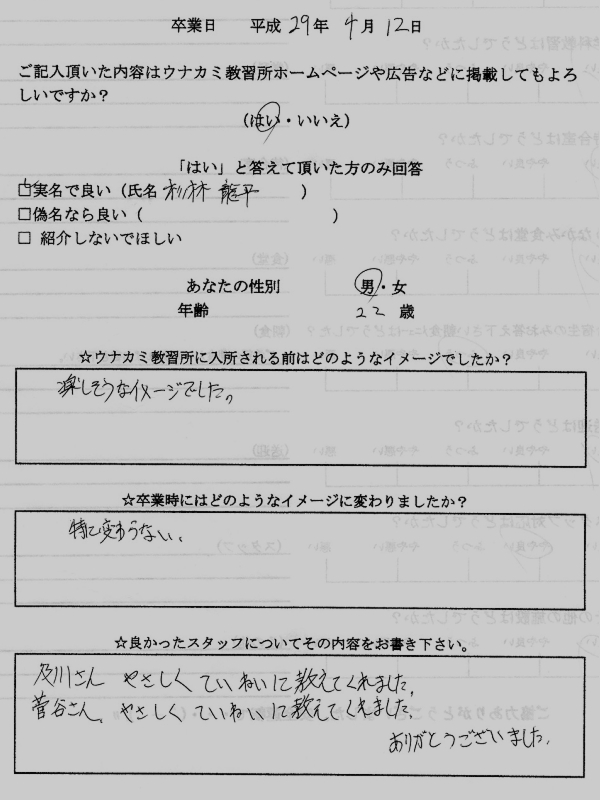 卒業日　平成29年4月12日
ご記入頂いた内容はウナカミ教習所ホームページや広告などに掲載してもよろ
しいですか？
（はい・いいえ）
「はい」と答えて頂いた方のみ回答
□実名で良い（氏名 杉林 龍平　）
□偽名なら良い（　）
□ 紹介しないでほしい
あなたの性別　男・女
年齢　22 歳
☆ウナカミ教習所に入所される前はどのようなイメージでしたか？
楽しそうなイメージでした。
☆卒業時にはどのようなイメージに変わりましたか？
特に変わらない。
☆良かったスタッフについてその内容をお書き下さい。
及川さん やさしく ていねいに教えてくれました。
菅谷さん、やさしく ていねいに教えてくれました。
ありがとうございました。